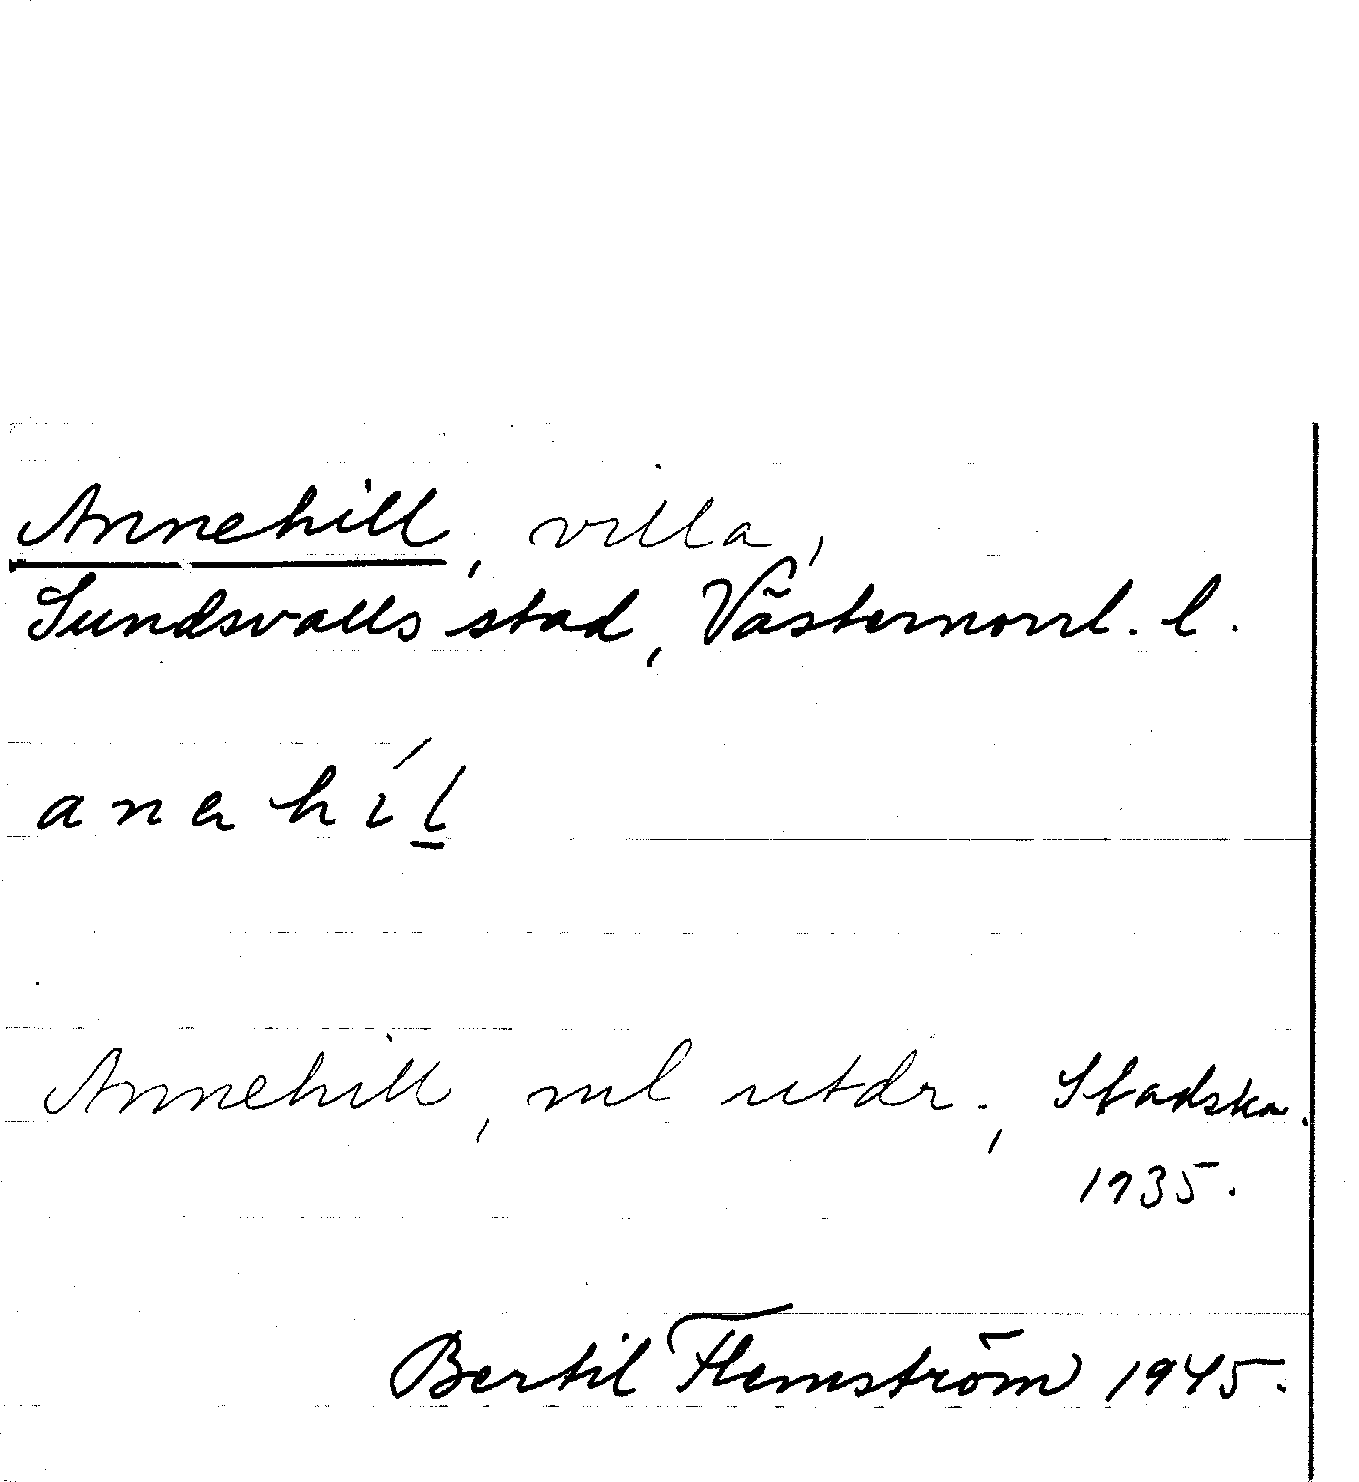 Annehill, villa,
Sundsvalls stad, Västernorrl. l.
anahíl
Annehill, ml utdr., Stadska.
1935.
Bertil Flemström 1945.